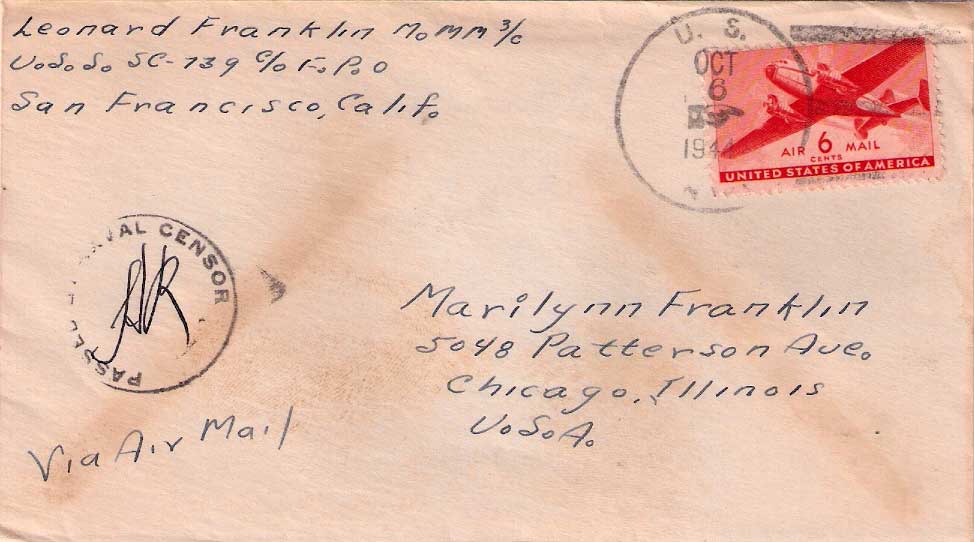 Leonard Franklin M.oMM 3/c
U.S.S. SC-739 c/o F.P.O
San Francisco, Calif.
U. S.
OCT
6
1944
AIR 6 MAIL
CENTS
UNITED STATES OF AMERICA
PASSED NAVAL CENSOR
Marilynn Franklin
5048 Patterson Ave.
Chicago, Illinois
U.S.A.
Via Air Mail